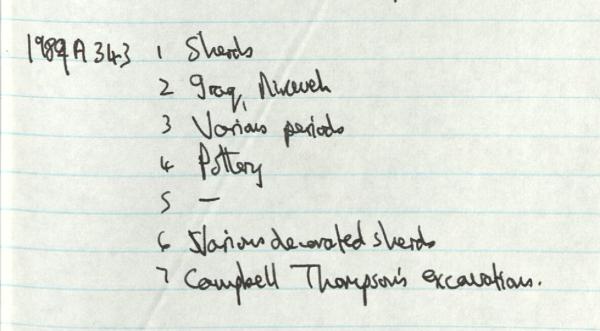 1989A343 1 Sherds
2 Iraq, Nineveh
3 Various periods
4 Pottery
5 —
6 Various decorated sherds
7 Campbell Thompson's excavations.